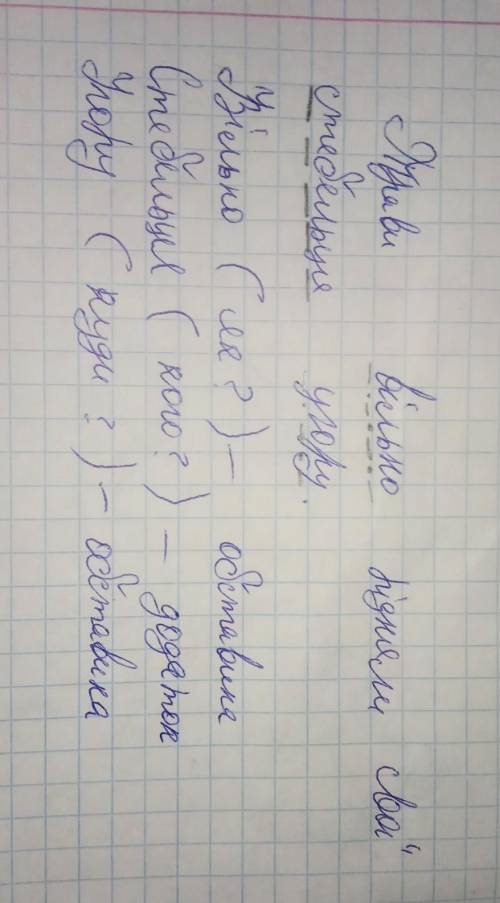 Трави вільно підняли свої
стебельця угору.
Вільно (як?) - обставина
Стебельця (кого?) - додаток
Угору (куди?) - обставина